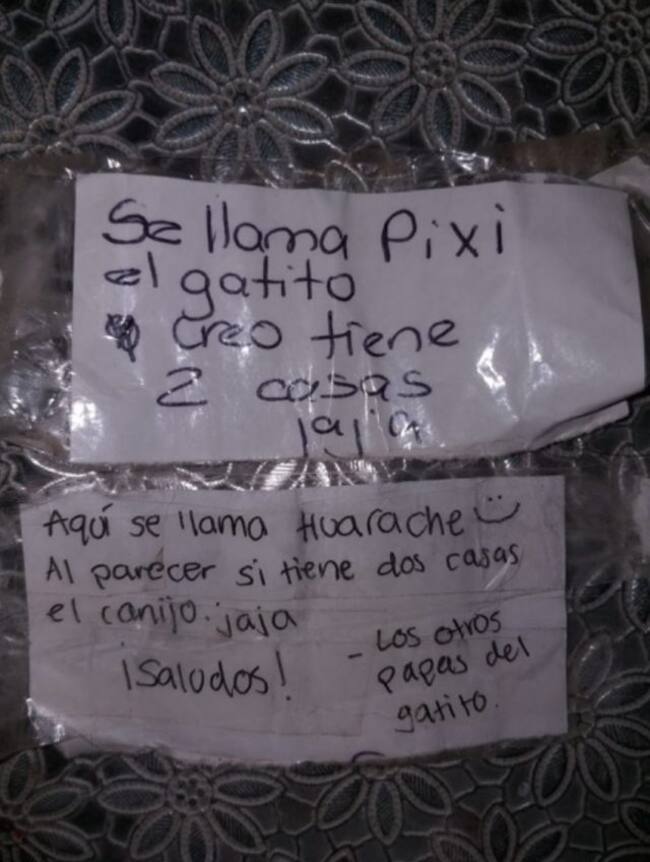 Se llama Pixi
el gatito
creo tiene
2 casas
jaja
Aquí se llama Huarache
Al parecer si tiene dos casas
el canijo. jaja
¡Saludos!
- Los otros
papas del
gatito.